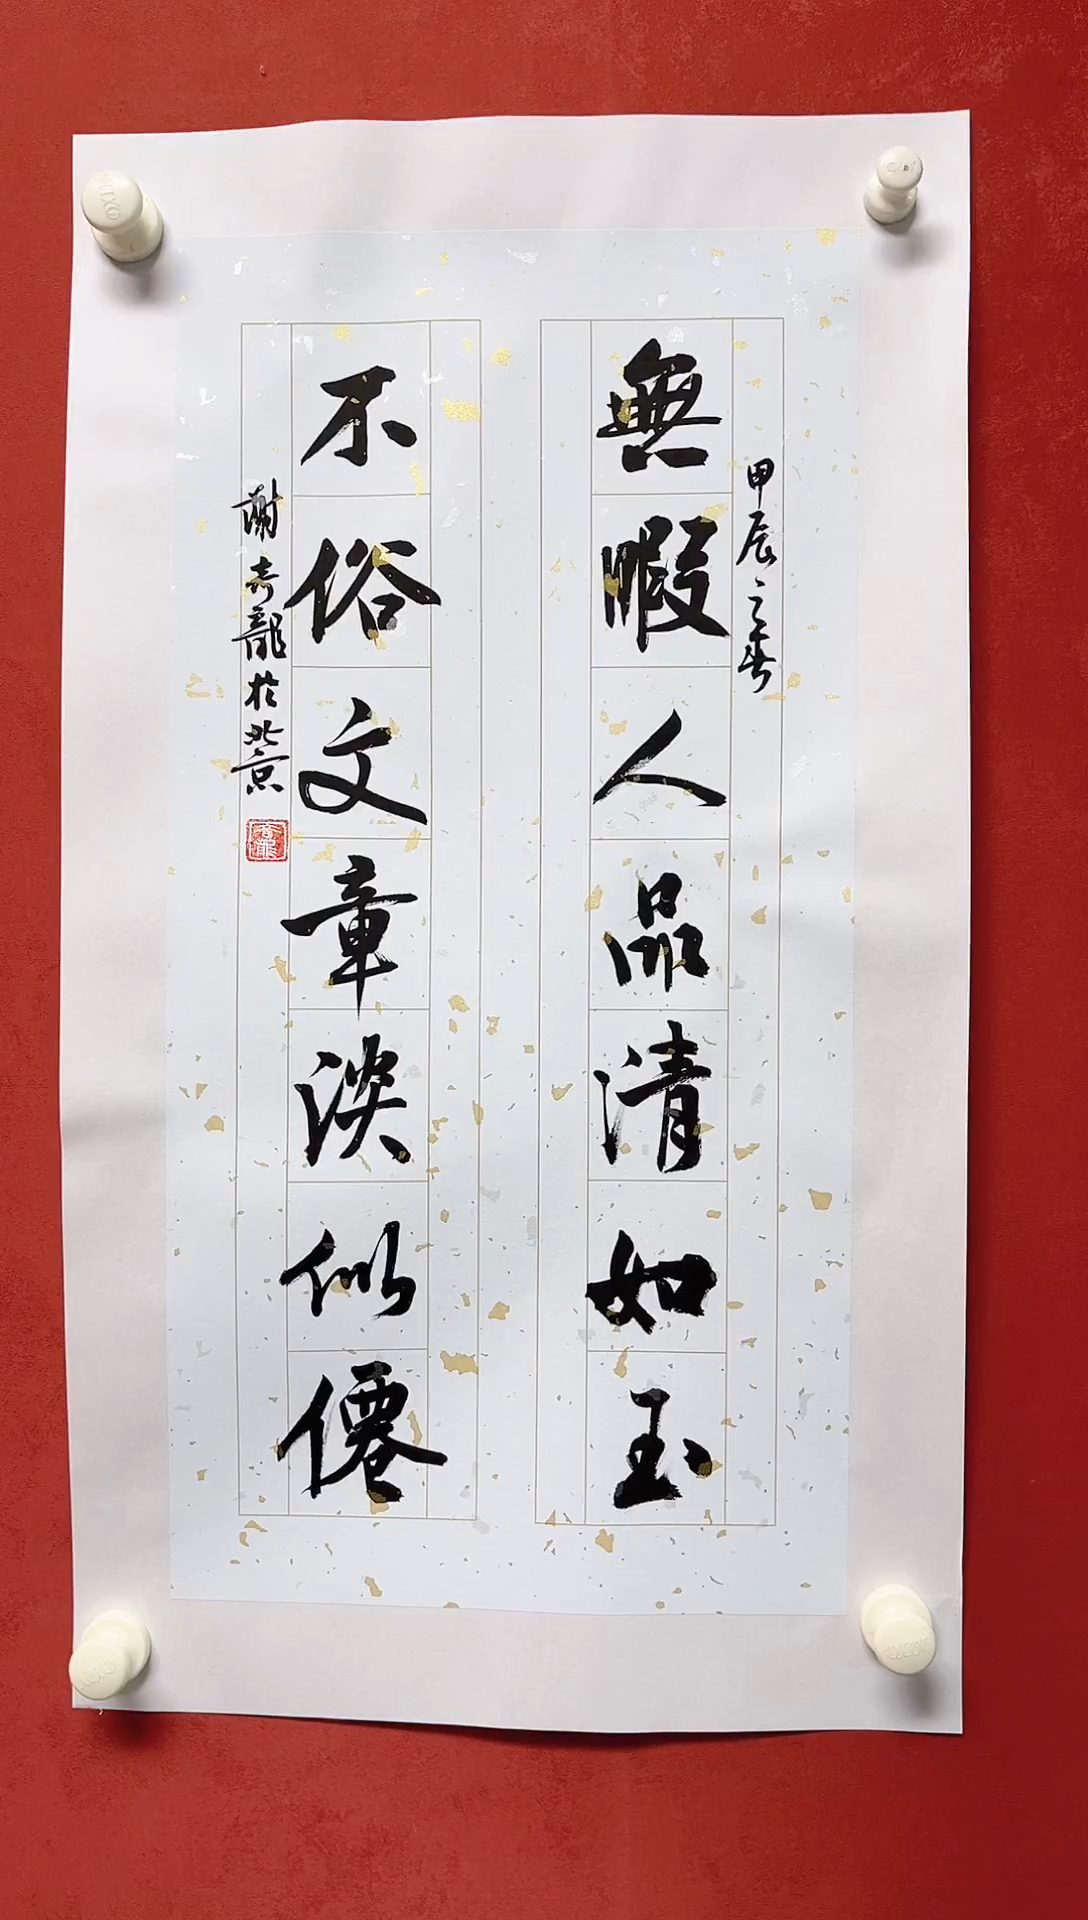 甲辰之春
無暇人品清如玉
不俗文章淡似僊
謝吉龍於北京